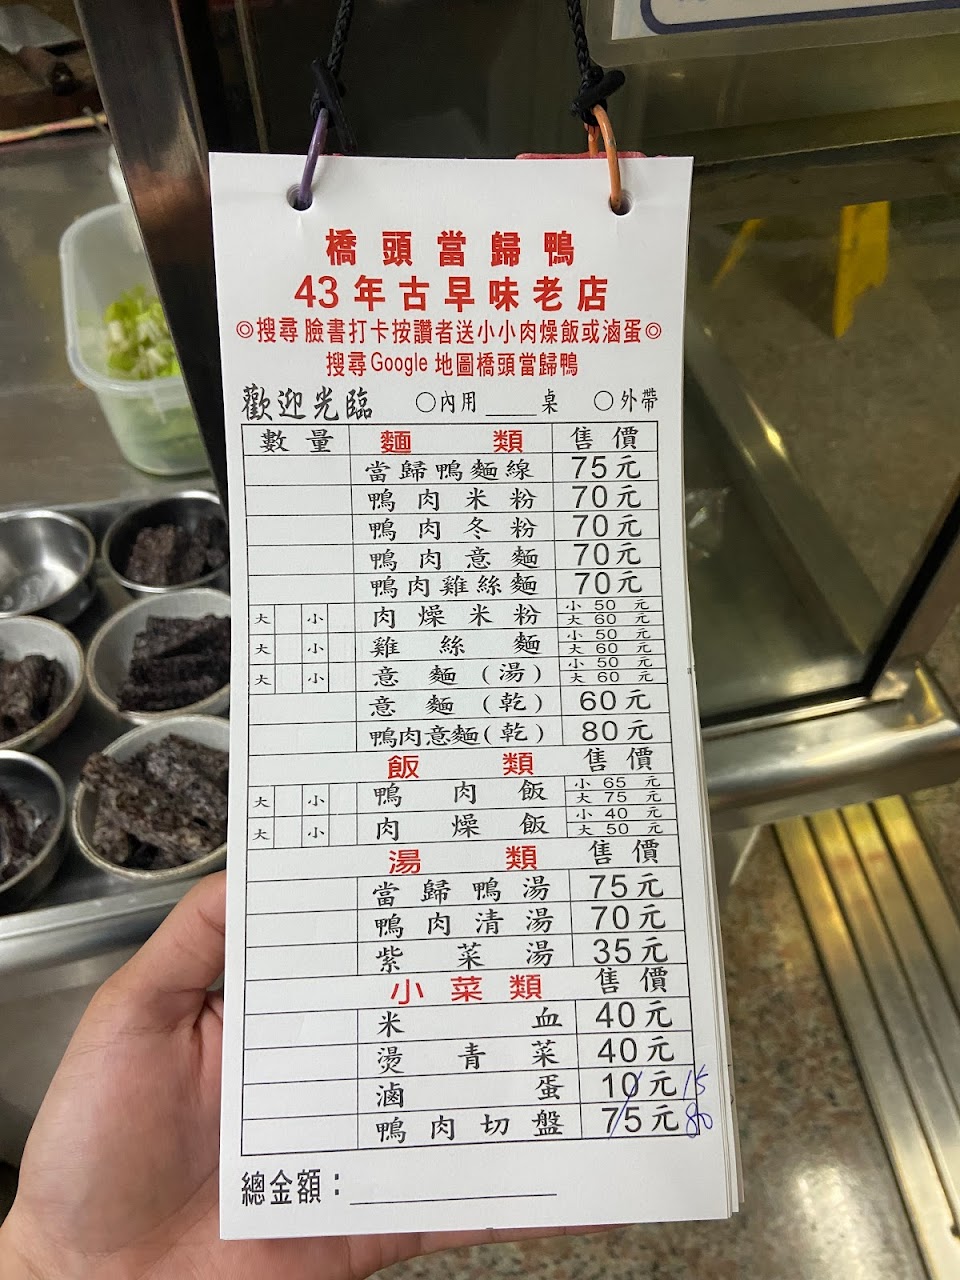 橋頭當歸鴨
43年古早味老店
◎搜尋 臉書打卡按讚者送小小肉燥飯或滷蛋◎
搜尋Google 地圖橋頭當歸鴨
歡迎光臨 ○內用____桌 ○外帶
數量 麵類 售價
當歸鴨麵線 75元
鴨肉米粉 70元
鴨肉冬粉 70元
鴨肉意麵 70元
鴨肉雞絲麵 70元
大 小 肉燥米粉 小 50 元 大 60 元
大 小 雞絲麵 小 50 元 大 60 元
大 小 意麵(湯) 小 50 元 大 60 元
意麵(乾) 60元
鴨肉意麵(乾) 80元
飯類 售價
大 小 鴨肉飯 小 65 元 大 75 元
大 小 肉燥飯 小 40 元 大 50 元
湯類 售價
當歸鴨湯 75元
鴨肉清湯 70元
紫菜湯 35元
小菜類 售價
米血 40元
燙青菜 40元
滷蛋 10元 15
鴨肉切盤 75元 80
總金額：____